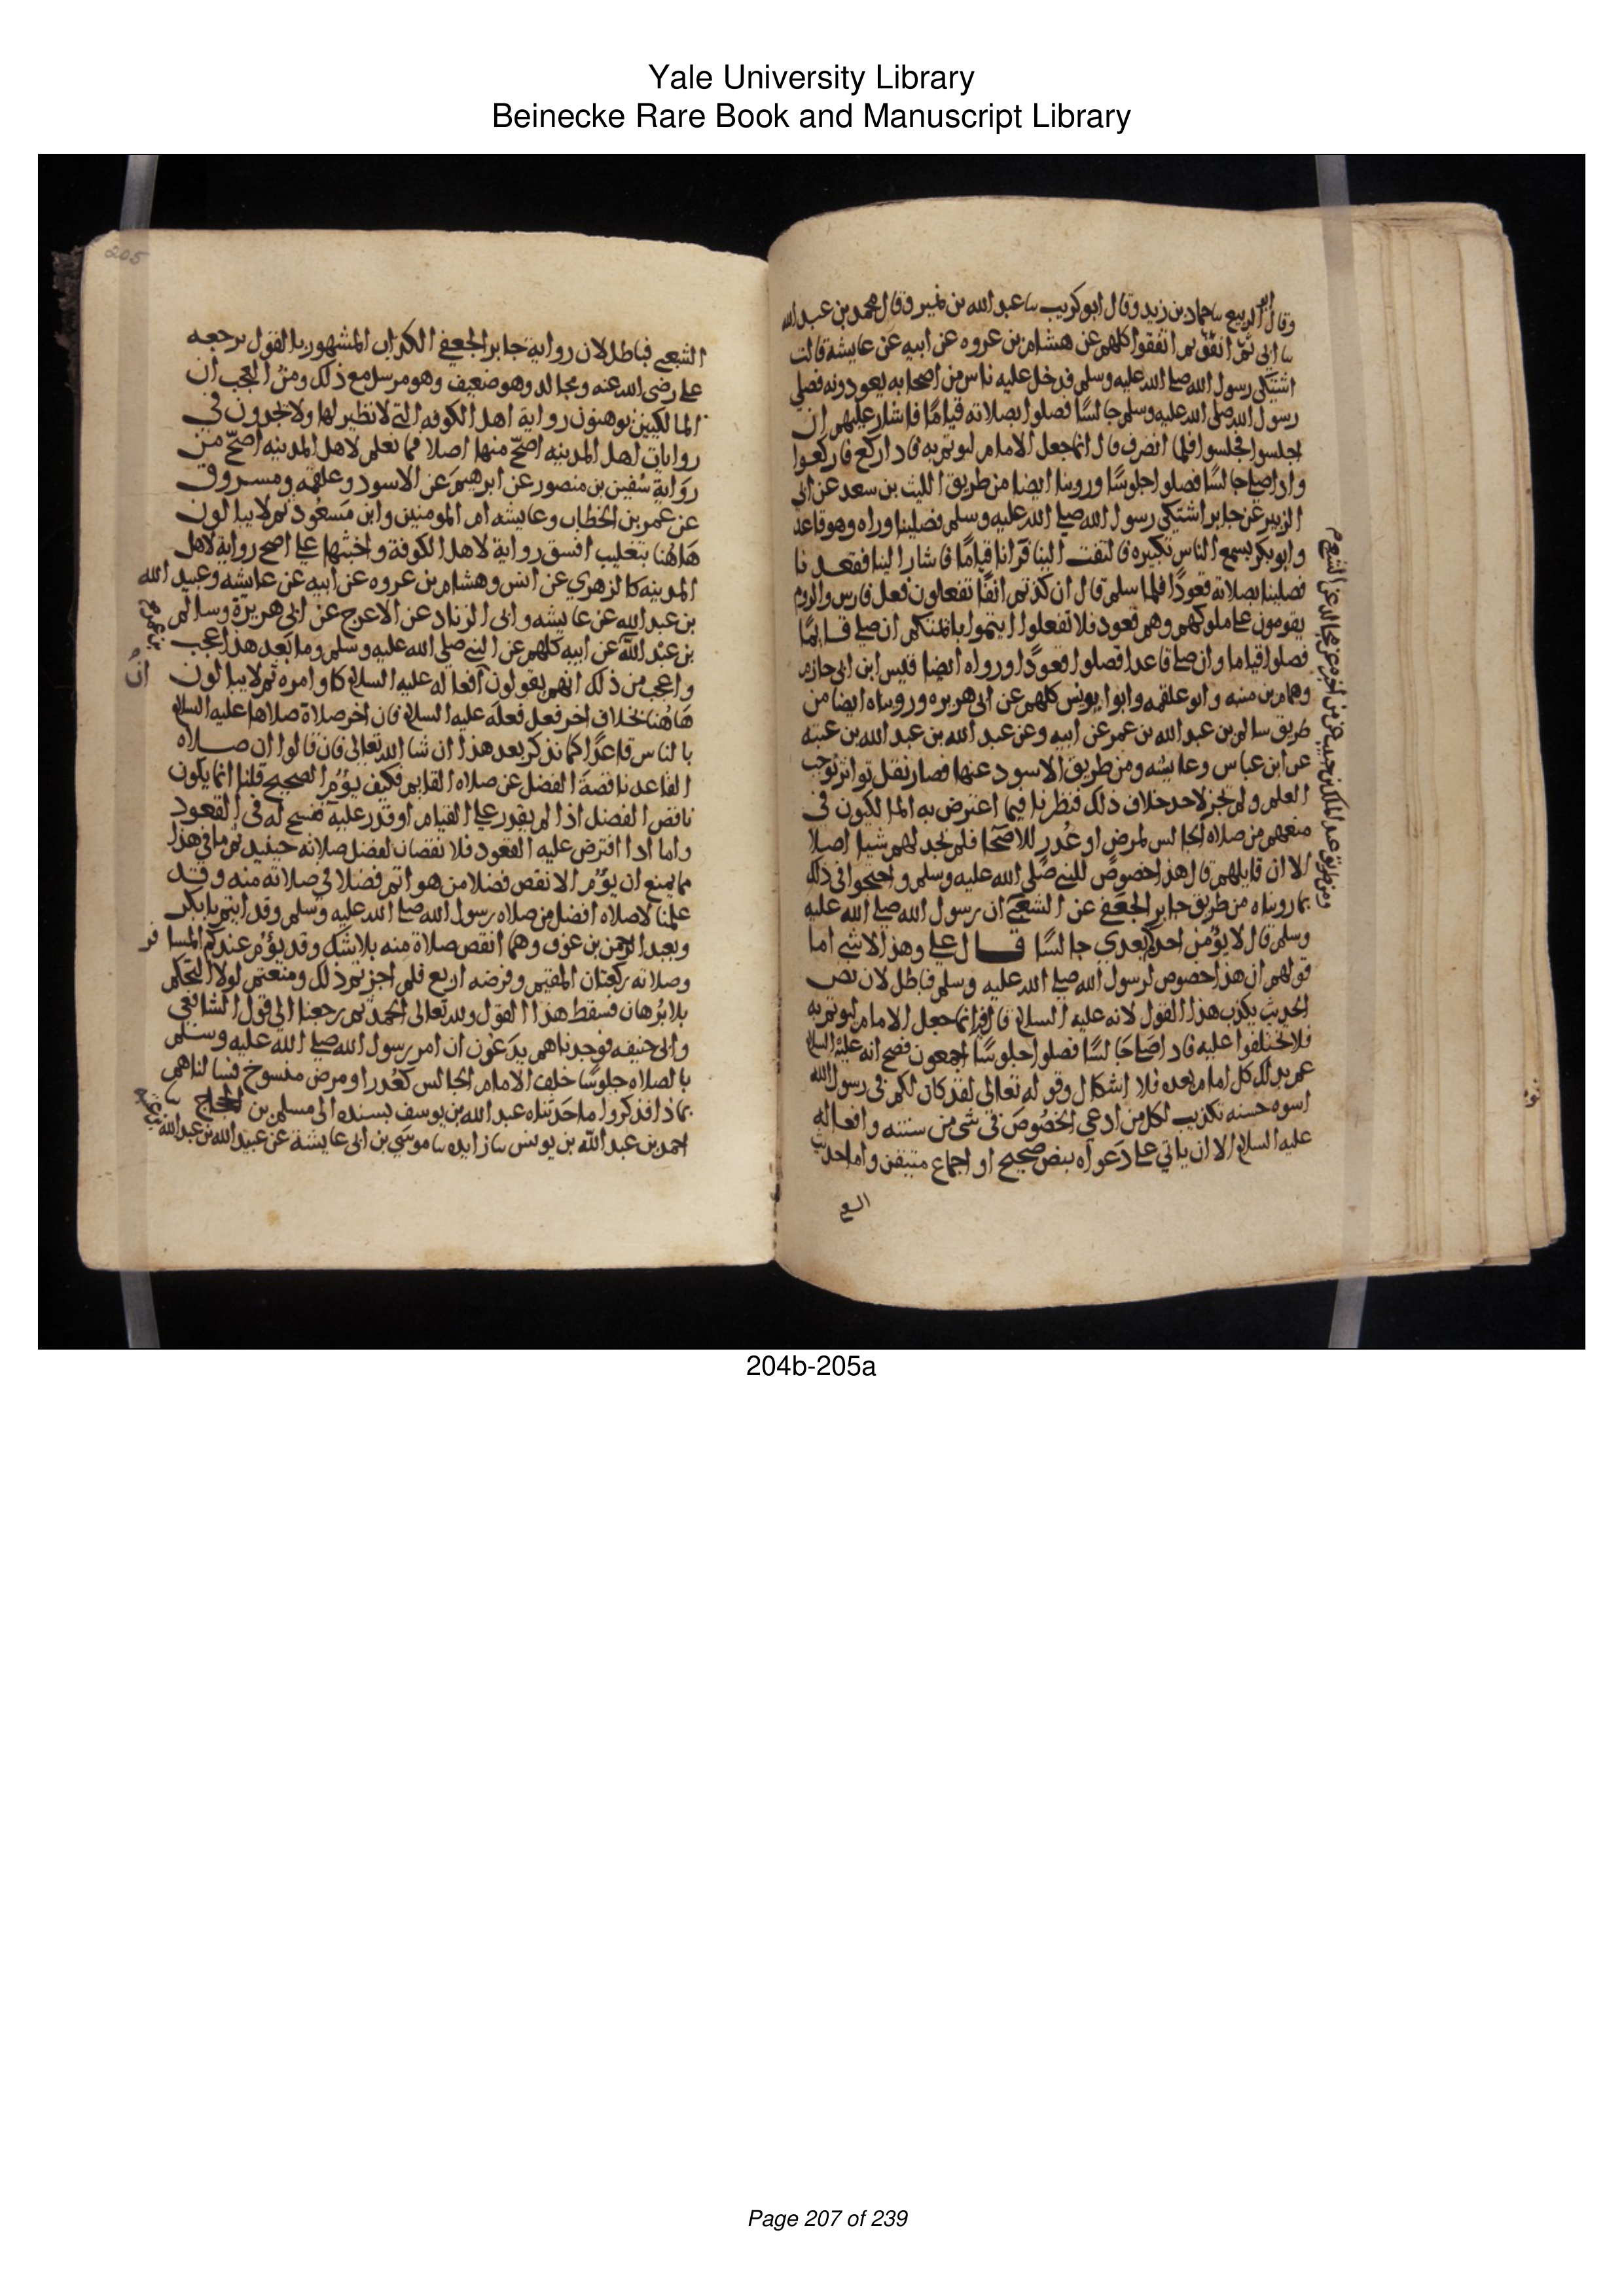 Yale University Library
Beinecke Rare Book and Manuscript Library
وقال ابو الربيع سا حماد بن زيد وقال ابو كريب سا عبد الله بن نمير وقال محمد بن عبد الله
سا ابي ثم اتفقوا كلهم عن هشام بن عروه عن ابيه عن عايشة قالت
اشتكى رسول الله صلى الله عليه وسلم فدخل عليه ناس من اصحابه يعودونه فصلى
رسول الله صلى الله عليه وسلم جالسًا فصلوا بصلاته قيامًا فاشار عليهم ان
اجلسوا فجلسوا فلما انصرف قال انما جعل الامام ليوتم به فاذا ركع فاركعوا
واذا صلى جالسًا فصلوا جلوسًا وروينا ايضا من طريق الليث بن سعد عن ابي
الزبير عن جابر اشتكى رسول الله صلى الله عليه وسلم فصلينا وراه وهو قاعد
وابو بكر يسمع الناس تكبيره فالتفت الينا فرانا قيامًا فاشار الينا فقعدنا
فصلينا بصلاته قعودًا فلما سلم قال ان كدتم انفًا تفعلون فعل فارس والروم
يقومون على ملوكهم وهم قعود فلا تفعلوا ايتموا بائمتكم ان صلى قايمًا
فصلوا قياما وان صلى قاعدا فصلوا قعودًا ورواه ايضا قيس ابن ابي حازم
وهمام بن منبه وابو علقمه وابو يونس كلهم عن ابي هريره ورويناه ايضا من
طريق سالم بن عبد الله بن عمر عن ابيه وعن عبد الله بن عبد الله بن عتبه
عن ابن عباس وعايشه ومن طريق الاسود عنها فصار نقل تواتر يوجب
العلم ولم يجز لاحد خلاف ذلك فنظرنا فيما اعترض به المالكيون في
منعهم من صلاه الجالس لمرض او عُذر للاصحا فلم نجد لهم شيا اصلا
الا ان قايلهم قال هذا خصوصٌ للنبي صلى الله عليه وسلم واحتجوا في ذلك
بما رويناه من طريق جابر الجعفي عن الشعبي ان رسول الله صلى الله عليه
وسلم قال لا يؤمن احد بعدي جالسًا قال علي وهذا لا شي اما
قولهم ان هذا خصوص لرسول الله صلى الله عليه وسلم فباطل لان نص
الحديث يكذب هذا القول لانه عليه السلام قال انما جعل الامام ليوتم به
فلا تختلفوا عليه فاذا صلى جالسًا فصلوا جلوسًا اجمعون فصح انه عليه السلام
عم بذلك كل امام بعده فلا اشكال وقوله تعالى لقد كان لكم في رسول الله
اسوه حسنه تكذيب لكل من ادعى الخصُوصَ في شي من سننه وافعاله
عليه السلام الا ان ياتي على دَعواه بنص صحيح او اجماع متيقن واما حديث
205
الشعبي فباطل لان رواية جابر الجعفي الكذاب المشهور بالقول برجعه
علي رضى الله عنه ومجالد وهو ضعيف وهو مرسل مع ذلك ومن العجب ان
المالكيين يوهنون رواية اهل الكوفه التي لا نظير لها ولا يجدون في
روايات اهل المدينه اصحّ منها اصلا فما نعلم لاهل المدينه اصحّ من
رواية سُفين بن منصور عن ابرهيم عن الاسود وعلقمه ومسروق
عن عمر بن الخطاب وعايشه ام المومنين وابن مسعُود ثم لا يبالون
هَاهُنا بتغليب افسق رواية لاهل الكوفة واخبثها على اصح رواية لاهل
المدينه كالزهري عن انس وهشام بن عروه عن ابيه عن عايشه وعبيد الله
بن عبد الله عن عايشه وابي الزناد عن الاعرج عن ابي هريرة وسالم
بن عبد الله عن ابيه كلهم عن النبي صلى الله عليه وسلم وما بَعد هذا عجب
واعجب من ذلك انهم يقولون افعاله عليه السلام كاوامره ثم لا يبالون
هَاهُنا بخلاف اخر فعل فعله عليه السلام فان اخر صلاة صلاها عليه السلام
بالناس قاعدًا كما نذكر بعد هذا ان شا الله تعالى فان قالوا ان صلاه
القاعد ناقصة الفضل عن صلاه القايم فكيف يؤم الصحيح قلنا انما يكون
ناقص الفضل اذا لم يقدر على القيام او قدر عليه ففسح له في القعود
واما اذا افترض عليه القعود فلا نقصان لفضل صلاته حينيد ثم ما في هذا
مما يمنع ان يؤم الانقص فضلا من هو اتم فضلا في صلاته منه وقد
علمنا لا صلاه افضل من صلاه رسول الله صلى الله عليه وسلم وقد ايتم بابي بكر
وبعبد الرحمن بن عوف وهما انقص صلاة منه بلا شك وقد يؤم عندكم المسافر
وصلاته ركعتان المقيم وفرضه اربع فلم اجزتم ذلك ومنعتم لولا التحكم
بلا بُرهان فسقط هذا القول ولله تعالى الحمد ثم رجعنا الى قول الشافعي
وابي حنيفه فوجدناهم يدعون ان امر رسول الله صلى الله عليه وسلم
بالصلاه جلوسًا خلف الامام الجالس لعُذر او مرض منسوخ فسالناهم
بماذا فذكروا ما حَدثناه عبد الله بن يوسف بسنده الى مسلم بن الحجاج سا
احمد بن عبد الله بن يونس سا زايده سا موسَى بن ابي عايشة عن عبيد الله بن عبد الله
204b-205a
Page 207 of 239